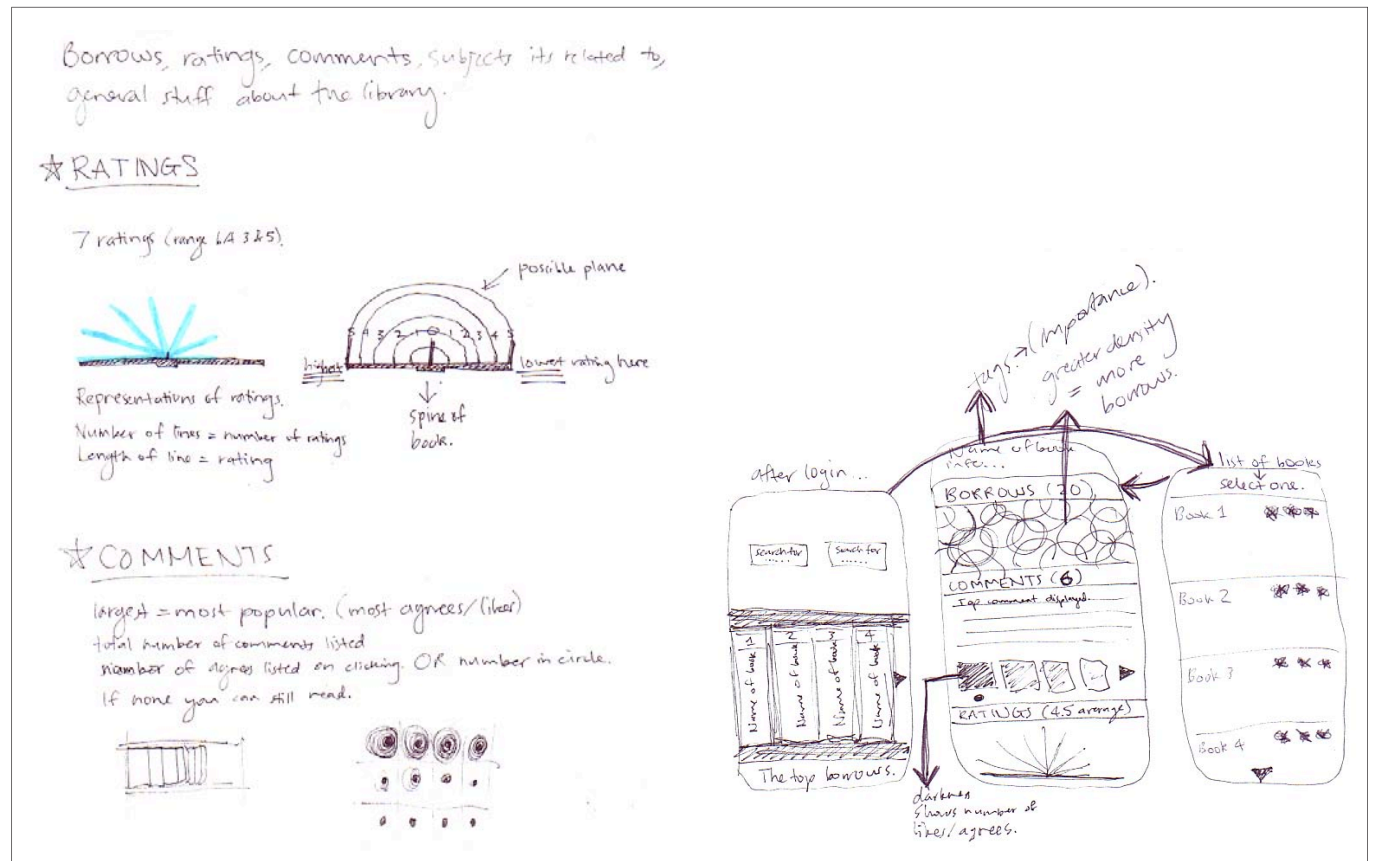 Borrows, ratings, comments, subjects its related to,
general stuff about the library.
☆ RATINGS
7 ratings (range 3 & 5).
possible plane
5 4 3 2 1 0 1 2 3 4 5
highest
lowest rating here
spine of
book.
Representations of ratings.
Number of lines = number of ratings
Length of line = rating
☆ COMMENTS
largest = most popular. (most agrees/likes)
total number of comments listed
number of agrees listed on clicking. OR number in circle.
If none you can still read.
tags. → (importance).
greater density
= more
borrows.
after login...
search for
......
search for
......
1 2 3 4
Name of book
Name of book
Name of book
Name of book
The top borrows.
Name of book
info...
BORROWS (20)
COMMENTS (6)
Top comment displayed.
RATINGS (4.5 average)
darkness
shows number of
likes/agrees.
list of books
select one.
Book 1
Book 2
Book 3
Book 4